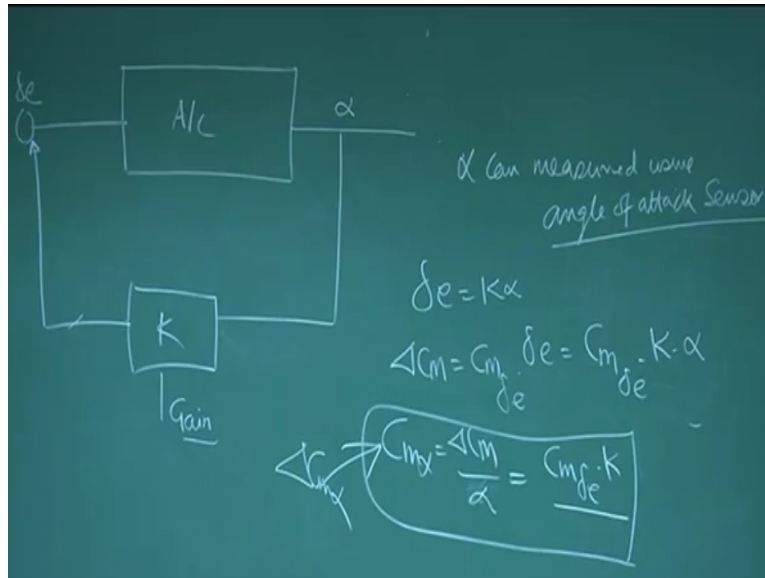 δe
A/c
α
α can measured using
angle of attack Sensor
K
Gain
δe = Kα
ΔCm = Cmδe · δe = Cmδe · K · α
ΔCmα
Cmα = ΔCm/α = Cmδe · K